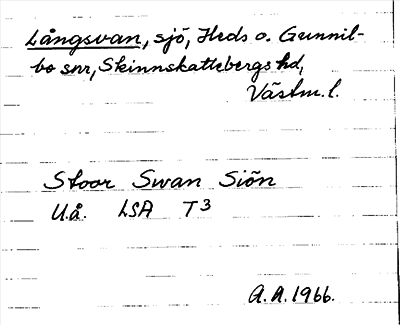 Långsvan, sjö, Heds o. Gunnil-
bo snr, Skinnskattebergs hd,
Västm. l.
Stoor Swan Siön
U.å. LSA T3
A.A. 1966.